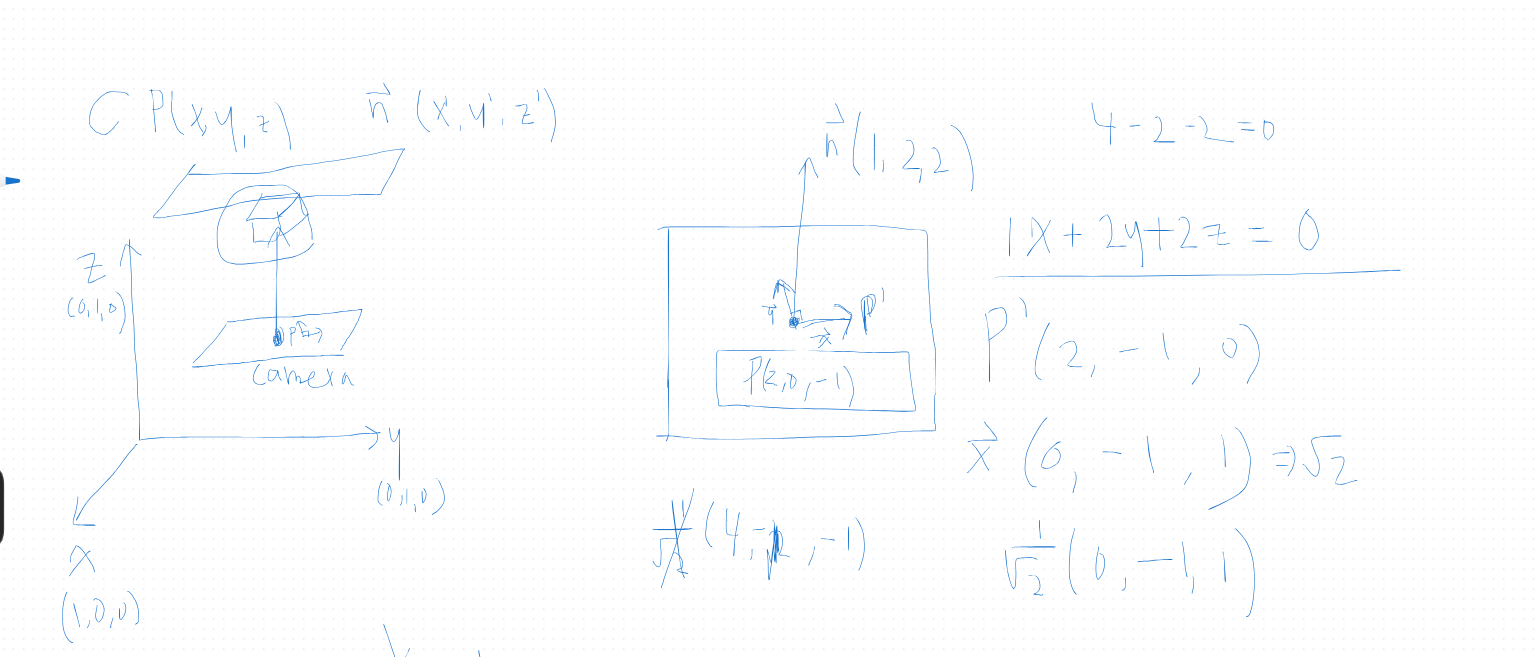 C P(x,y,z)
n⃗ (x',y',z')
Z
(0,1,0)
camera
y
(0,1,0)
x
(1,0,0)
n⃗ (1,2,2)
P'
y⃗
x⃗
P(2,0,-1)
(4, , -1)
4-2-2=0
1x+2y+2z=0
P'(2,-1,0)
x⃗ (0,-1,1) ⇒ √2
1/√2 (0,-1,1)